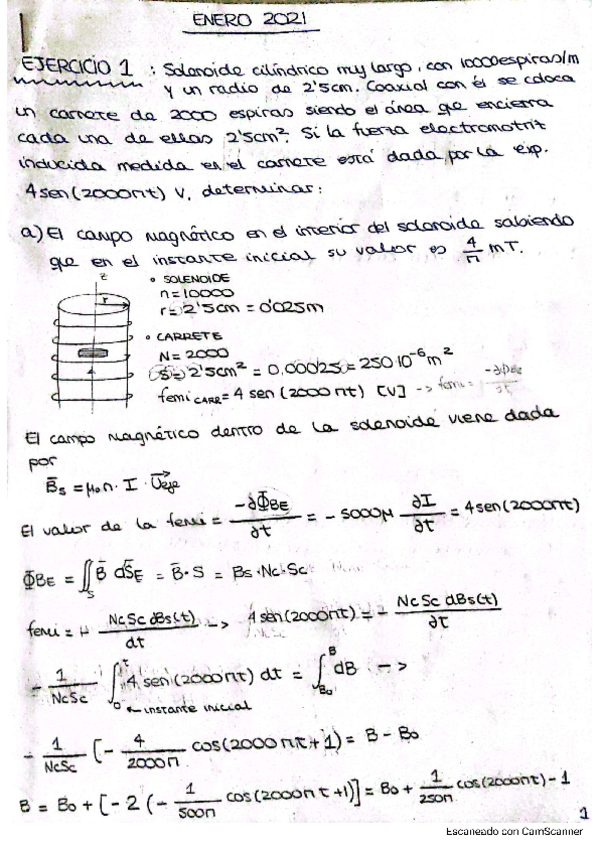 ENERO 2021
EJERCICIO 1 : Solenoide cilíndrico muy largo, con 10000 espiras/m
y un radio de 2'5cm. Coaxial con él se coloca
un carrete de 2000 espiras siendo el área que encierra
cada una de ellas 2'5cm². Si la fuerza electromotriz
inducida medida en el carrete está dada por la exp.
4sen(2000πt) V, determinar:
a) El campo magnético en el interior del solenoide sabiendo
que en el instante inicial su valor es 4/π mT.
z
r
• SOLENOIDE
n = 10000
r = 2'5cm = 0'025m
• CARRETE
N = 2000
S = 2'5cm² = 0.00025 = 250·10⁻⁶ m²
femi CARR = 4 sen (2000πt) [V] -> femi = -∂ΦBE/∂t
El campo magnético dentro de la solenoide viene dada
por
B̄s = μ₀n · I · Ueje
El valor de la femi = -∂Φ̄BE/∂t = - 5000μ ∂I/∂t = 4sen(2000πt)
Φ̄BE = ∬s B̄ dS̄E = B̄·S = Bs·Nc·Sc
femi = - NcSc dBs(t)/dt -> 4sen(2000πt) = - NcSc dBs(t)/∂t
- 1/NcSc ∫₀ᵗ 4sen(2000πt) dt = ∫B₀ᴮ dB ->
← instante inicial
- 1/NcSc [- 4/2000π cos(2000πt+1) = B - B₀
B = B₀ + [-2 (- 1/500π cos(2000πt+1)] = B₀ + 1/250π cos(2000πt) - 1
1
Escaneado con CamScanner